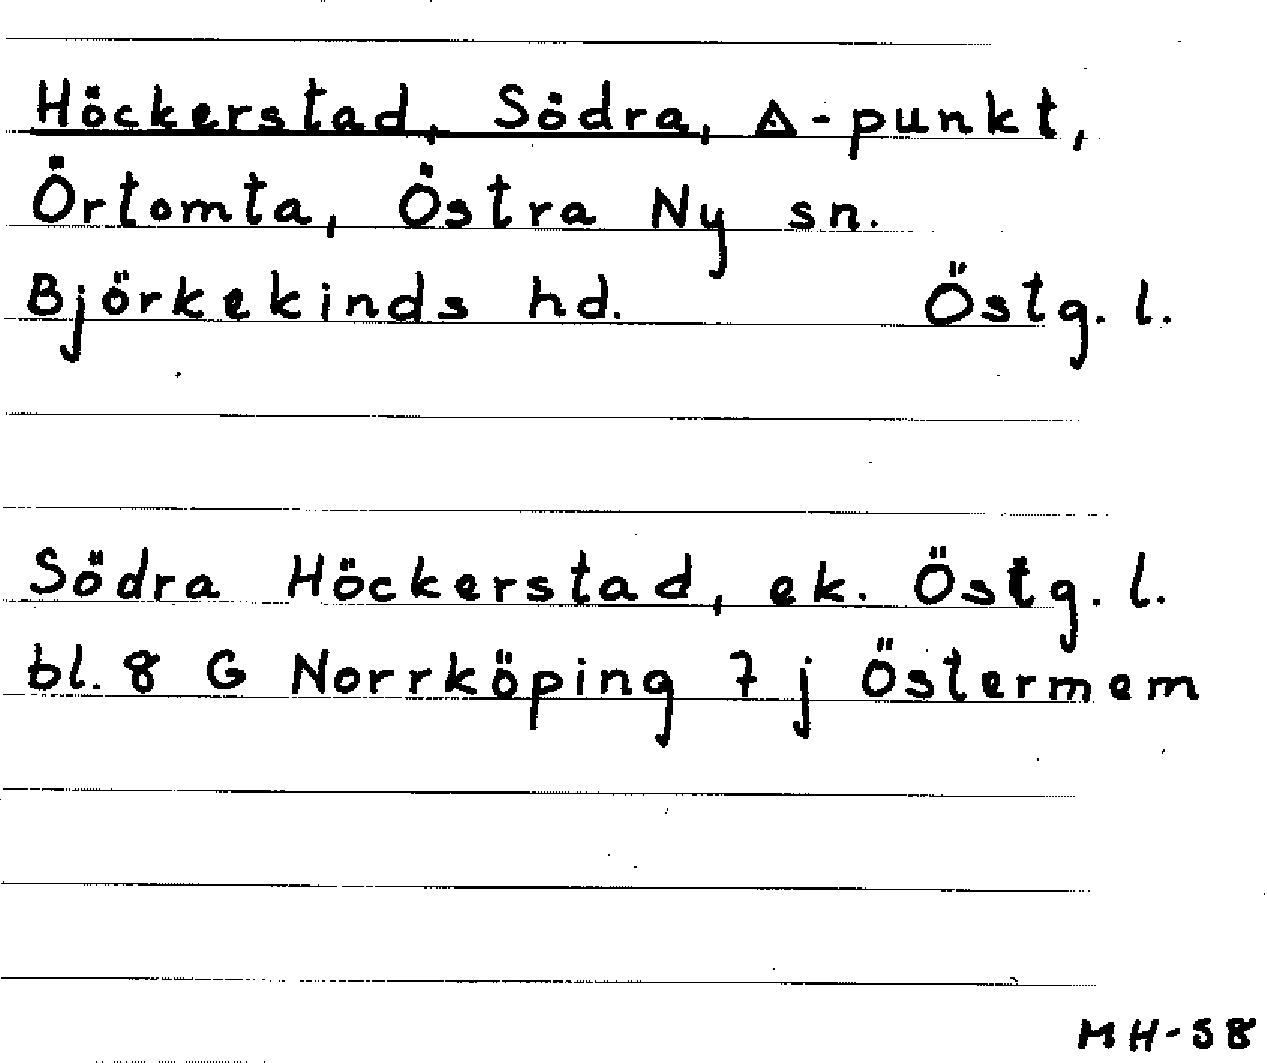 Höckerstad, Södra, △-punkt,
Örtomta, Östra Ny sn.
Björkekinds hd. Östg. l.
Södra Höckerstad, ek. Östg. l.
bl. 8 G Norrköping 7 j Östermem
MH-58